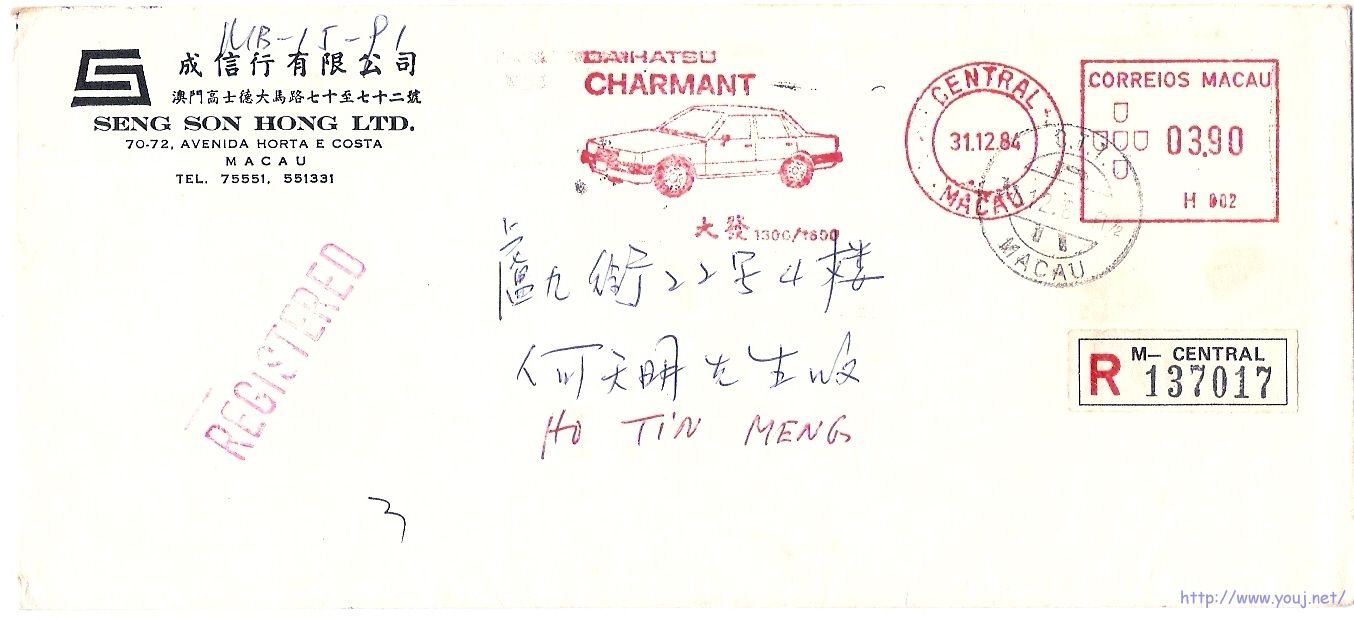 MB-15-91
成信行有限公司
澳門高士德大馬路七十至七十二號
SENG SON HONG LTD.
70-72, AVENIDA HORTA E COSTA
MACAU
TEL. 75551, 551331
DAIHATSU
CHARMANT
大發 1300/1600
CENTRAL
31.12.84
MACAU
CORREIOS MACAU
03.90
H 002
C.T.T.
MACAU
盧九街22号4楼
何天明先生收
HO TIN MENG
REGISTERED
R M- CENTRAL
137017
3
http://www.youj.net/